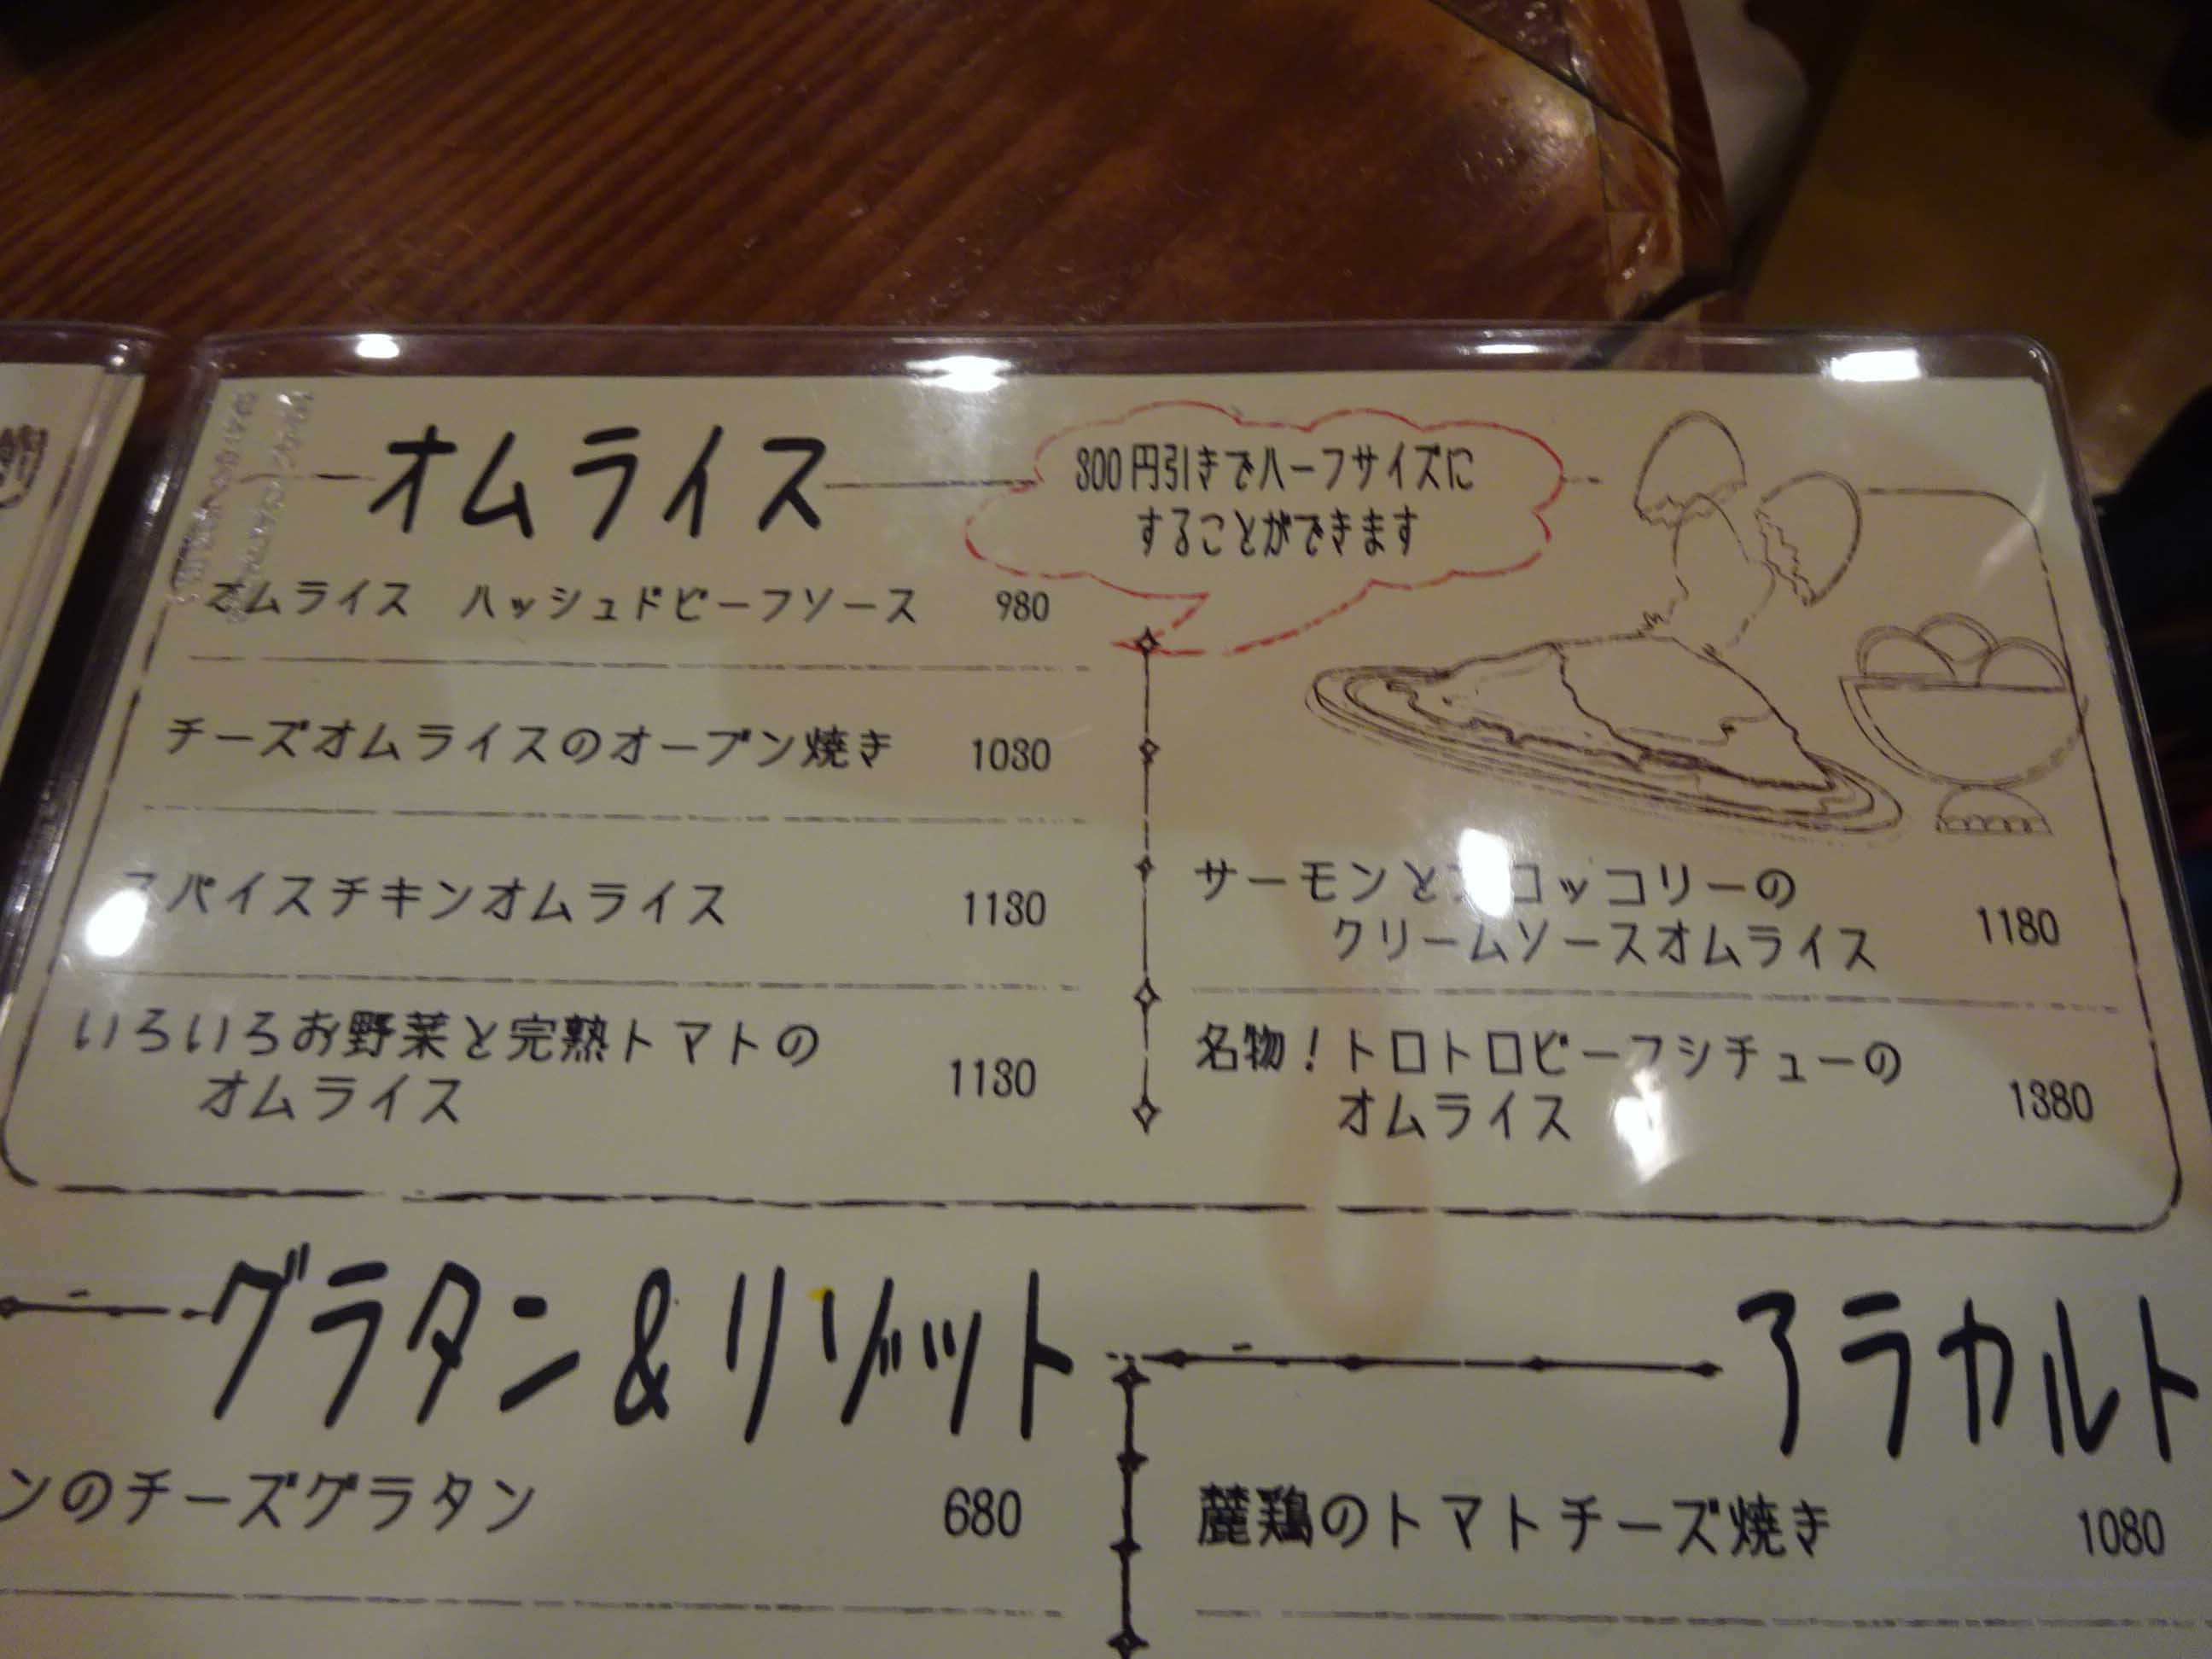 オムライス
300円引きでハーフサイズに
することができます
オムライス ハッシュドビーフソース 980
チーズオムライスのオーブン焼き 1030
スパイスチキンオムライス 1130
いろいろお野菜と完熟トマトの
オムライス 1130
サーモンとブロッコリーの
クリームソースオムライス 1180
名物！トロトロビーフシチューの
オムライス 1380
グラタン&リゾット
ンのチーズグラタン 680
アラカルト
麓鶏のトマトチーズ焼き 1080